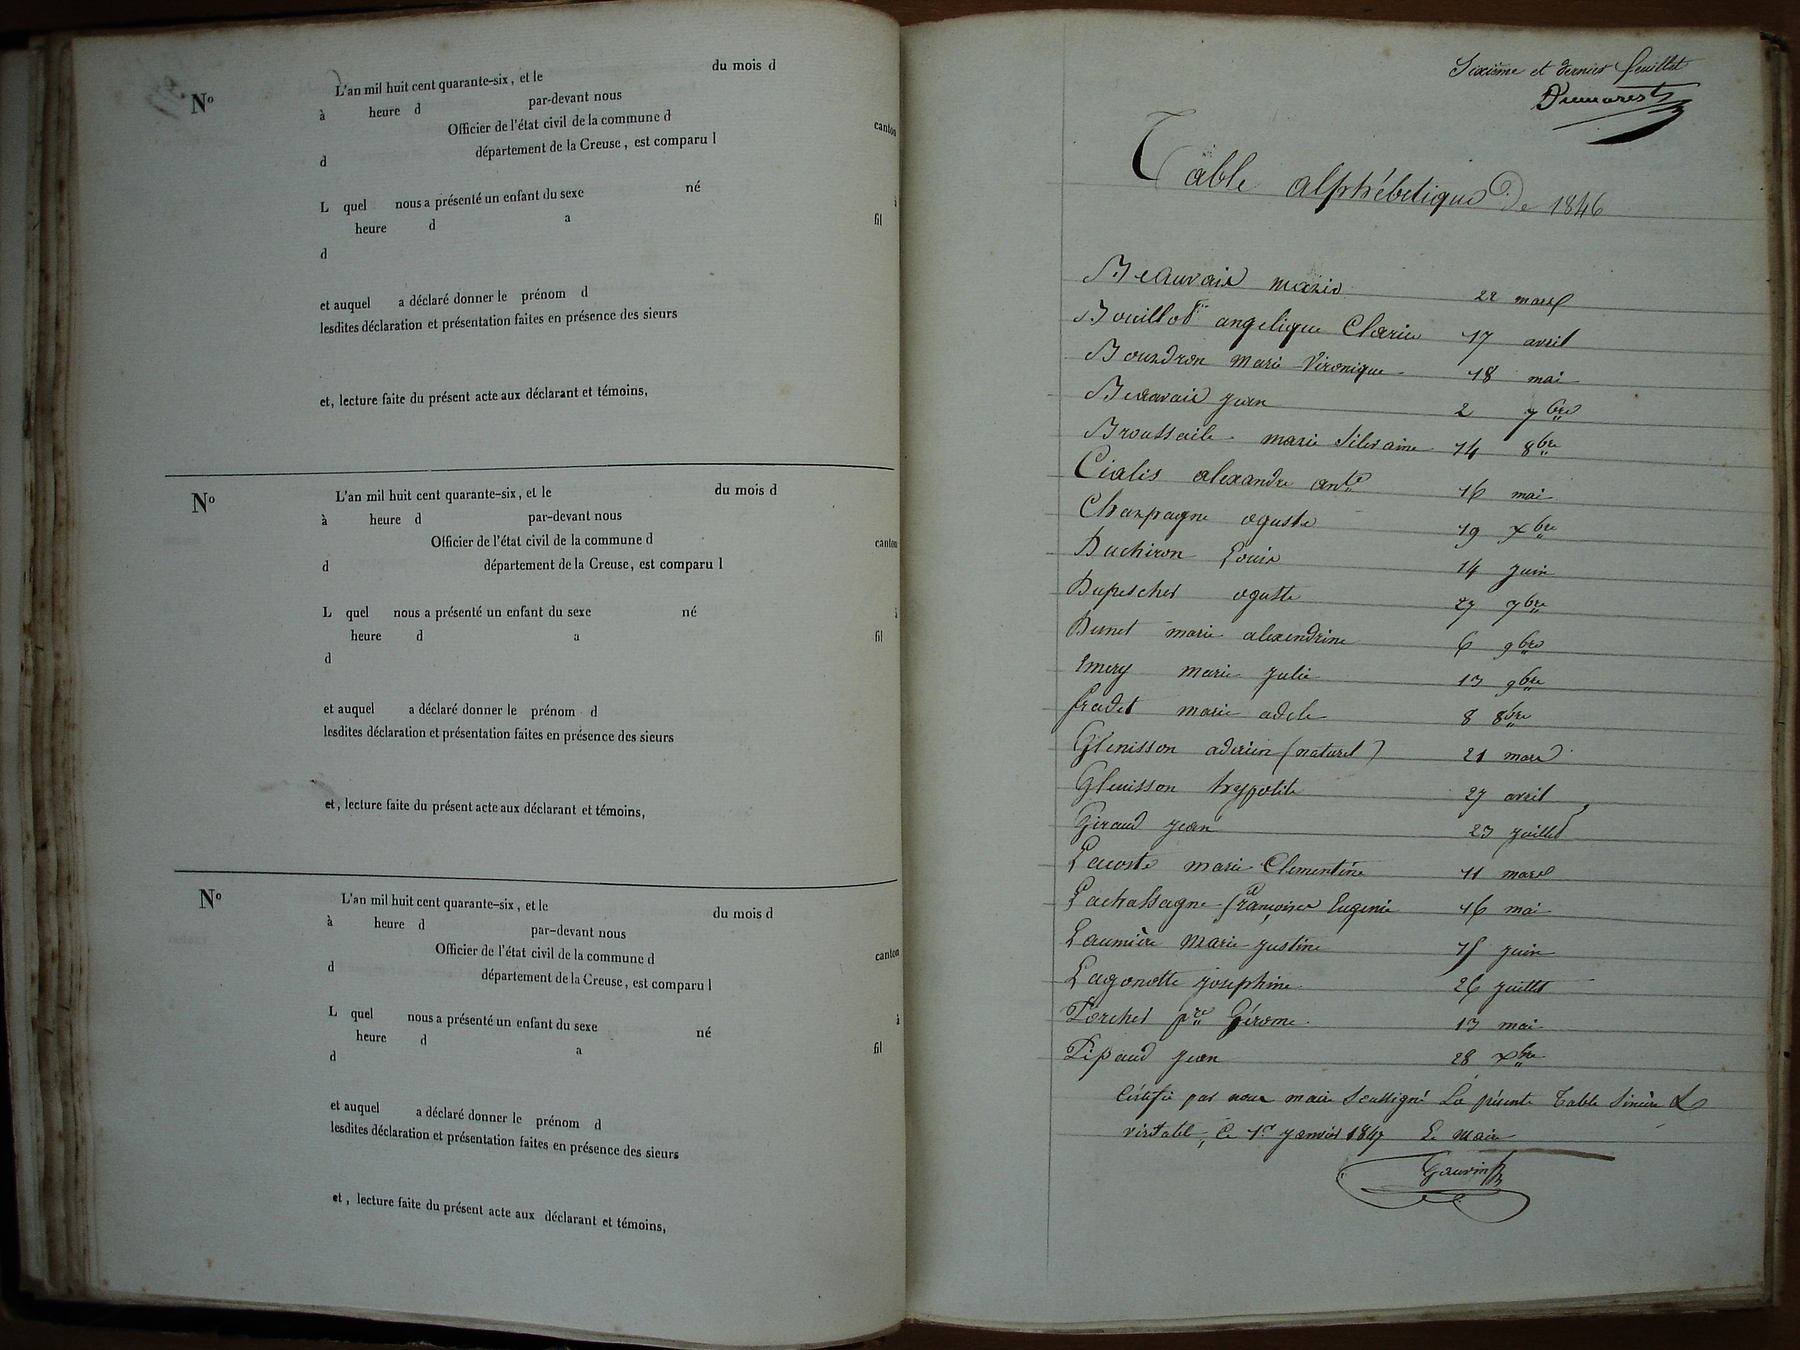 Nº
L'an mil huit cent quarante-six, et le du mois d
à heure d par-devant nous
Officier de l'état civil de la commune d canton
d département de la Creuse, est comparu l
L quel nous a présenté un enfant du sexe né à
heure d a fil
d
et auquel a déclaré donner le prénom d
lesdites déclaration et présentation faites en présence des sieurs
et, lecture faite du présent acte aux déclarant et témoins,
Nº
L'an mil huit cent quarante-six, et le du mois d
à heure d par-devant nous
Officier de l'état civil de la commune d canton
d département de la Creuse, est comparu l
L quel nous a présenté un enfant du sexe né à
heure d a fil
d
et auquel a déclaré donner le prénom d
lesdites déclaration et présentation faites en présence des sieurs
et, lecture faite du présent acte aux déclarant et témoins,
Nº
L'an mil huit cent quarante-six, et le du mois d
à heure d par-devant nous
Officier de l'état civil de la commune d canton
d département de la Creuse, est comparu l
L quel nous a présenté un enfant du sexe né à
heure d a fil
d
et auquel a déclaré donner le prénom d
lesdites déclaration et présentation faites en présence des sieurs
et, lecture faite du présent acte aux déclarant et témoins,
Sixième et dernier feuillet
Dumarest
Table alphébetique De 1846
Beauvais marie 22 mars
Bouillot angelique Clarie 17 avril
Bourdron Marie Véronique 18 mai
Beauvais jean 2 7bre
Broussaile marie Silvaine 14 8bre
Cialis alexandre ante 16 mai
Charpagne oguste 19 xbre
Duchiron Louis 14 juin
Dupescher oguste 27 7bre
Dunet marie alexendrine 6 9bre
Emery marie julie 13 9bre
fradet marie adele 8 8bre
Glenisson adrien (naturel) 21 mars
Glenisson hyppolite 27 avril
Giraud jean 23 juillet
Lacoste marie Clementine 11 mars
Lachassagne françoise Eugenie 16 mai
Laumière Marie justine 15 juin
Lagonotte josephine 26 juillet
Porcher pre Gérome 13 mai
Pipaud jean 28 xbre
Cértifié par nous maire Soussigné La présente Table Sincère et
véritable, le 1er janvier 1847 Le Maire
Gauvin